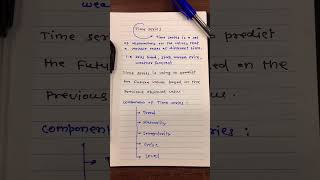 Time series
→ Time series is a set
of observations for the values that
a variable takes at different time.
i.e sales trend, stock market price,
weather forecast
Time series is using to predict
the future values based on the
previous observed value
Components of Time series:
→ Trend
→ Seasonality
→ Irregularity
→ Cyclic
→ Level